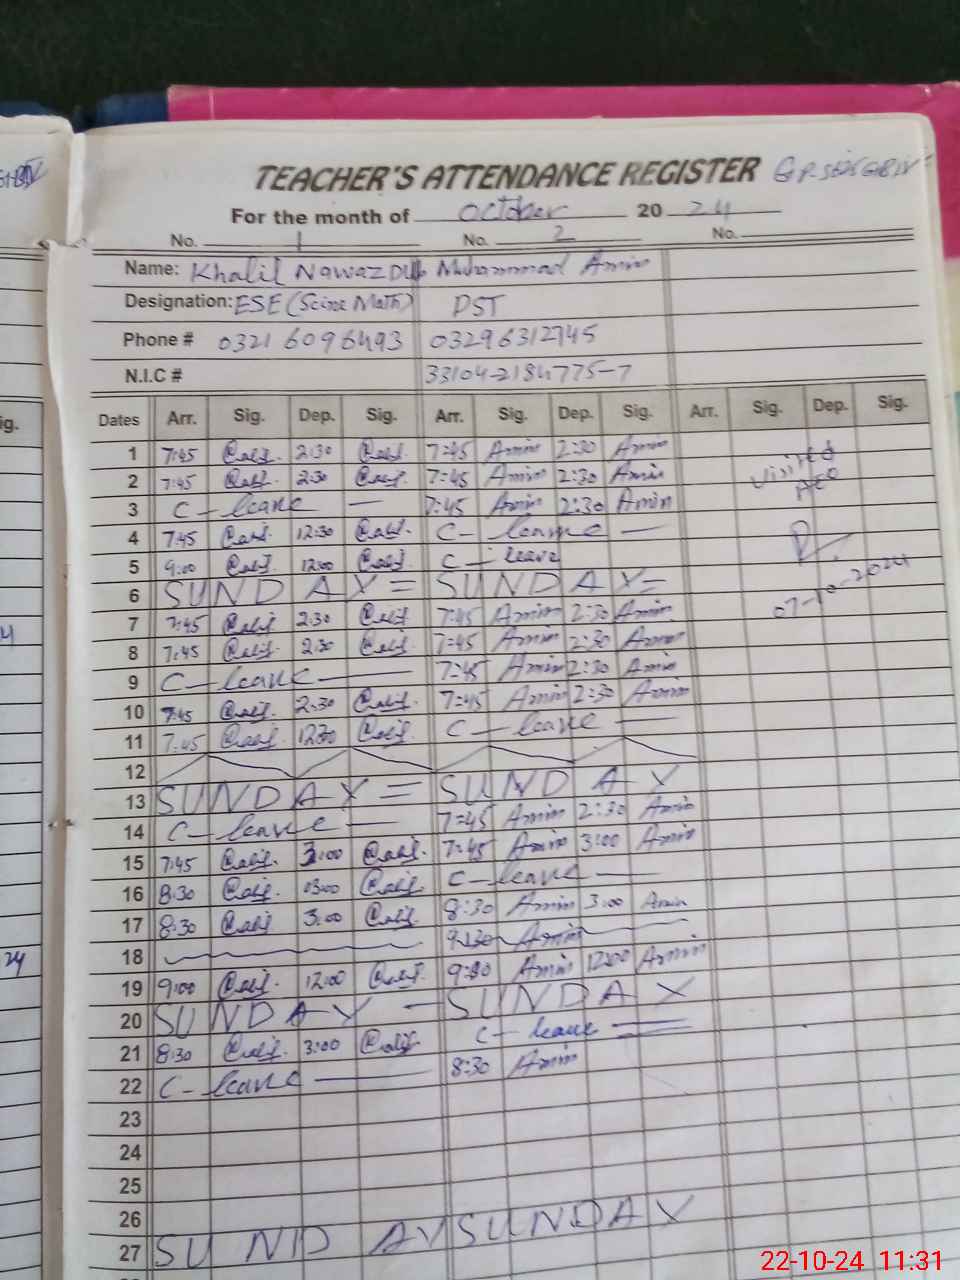 TEACHER'S ATTENDANCE REGISTER
For the month of October 20 24
No. 1 No. 2 No.
Name: Khalil Nawaz Muhammad Amin
Designation: ESE (Scine Math) PST
Phone # 0321 6096493 03296312745
N.I.C # 33104-2184775-7
Dates Arr. Sig. Dep. Sig. Arr. Sig. Dep. Sig. Arr. Sig. Dep. Sig.
1 7:45 2:30 7:45 Amin 2:30 Amin
2 7:45 2:30 7:45 Amin 2:30 Amin visited AEO
3 C-leave — 7:45 Amin 2:30 Amin
4 7:45 12:30 C-leave —
5 9:00 12:00 C-leave
6 SUNDAY = SUNDAY = 07-10-2024
7 7:45 2:30 7:45 Amin 2:30 Amin
8 7:45 2:30 7:45 Amin 2:30 Amin
9 C-leave — 7:45 Amin 2:30 Amin
10 7:45 2:30 7:45 Amin 2:30 Amin
11 7:45 12:30 C-leave —
12
13 SUNDAY = SUNDAY
14 C-leave — 7:45 Amin 2:30 Amin
15 7:45 3:00 7:45 Amin 3:00 Amin
16 8:30 03:00 C-leave —
17 8:30 3:00 8:30 Amin 3:00 Amin
18 9:30 Amin
19 9:00 12:00 9:00 Amin 12:00 Amin
20 SUNDAY — SUNDAY
21 8:30 3:00 C-leave
22 C-leave — 8:30 Amin
23
24
25
26
27 SUNDAY SUNDAY
ig.
24
22-10-24 11:31